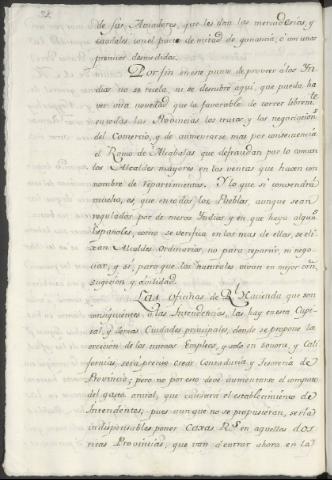 de sus Aviadores, que les dan las mercaderias, y
caudales con el pacto de mitad de ganancia, ó con unos
premios desmedidos.
Por fin en este punto de proveer á los In-
dios no se recela, ni se descubre aqui, que pueda ha-
ver otra novedad que la favorable de correr libremte.
en todas las Provincias los tratos, y las negociaciones
del Comercio, y de aumentarse mas por consecuencia
el Ramo de Alcabalas que defraudan por lo comun
los Alcaldes mayores en las ventas que hacen con
nombre de repartimientos. Y lo que si convendrá
mucho, es, que en todos los Pueblos, aunque sean
regulados por de meros Indios, y en que haya algunos
Españoles, como se verifica en los mas de ellos, se eli-
jan Alcaldes Ordinarios, no para repartir, ni nego-
ciar, y sí, para que los Naturales vivan en mejor con
sugecion y cantidad.
Las oficinas de Rl. Hacienda que son
consiguientes á las Intendencias, las hay en esta Capi-
tal, y demas Ciudades principales, donde se propone la
creación de los nuevos Empleos, y solo en Sonora, y Cali-
fornias, será preciso crear Contaduria y Tesoreria de
Provincia; pero no por esto deve aumentarse el computo
del gasto anual, que causará el establecimiento de
Intendentes; pues aunque no se propusieran, sería
indispensables poner Caxas Rs. en aquellas dos
ricas Provincias, que van á entrar ahora en la